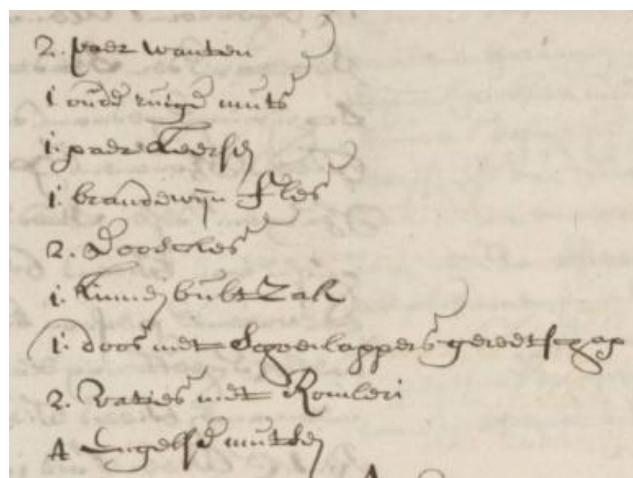 2. paer wanten
1 oude ruige muts
1. paer Leersen
1. brandewijn fles
2. Doosies
1. bultzak
1. doos met Schoenlappers gereetschap
2. vaties met Romleri
4 Engelse mutsen